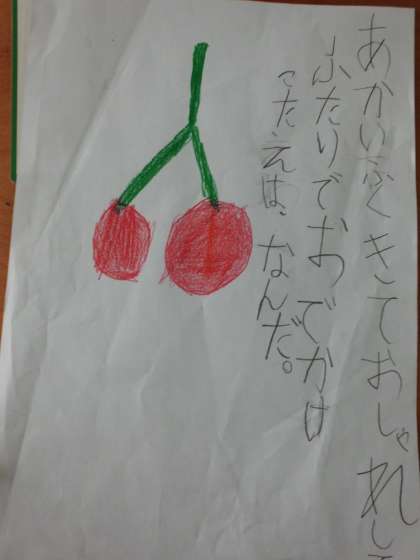 あかいふくきておしゃれして
ふたりでおでかけ
こたえは、なんだ。